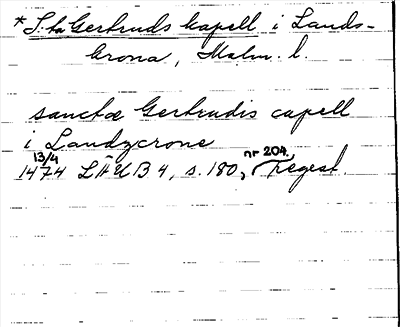 * S:ta Gertruds kapell i Lands-
krona, Malm. l.
sanctæ Gertrudis capell
i Landzcrone
13/4 nr 204,
1474 LÄUB 4, s. 180, regest